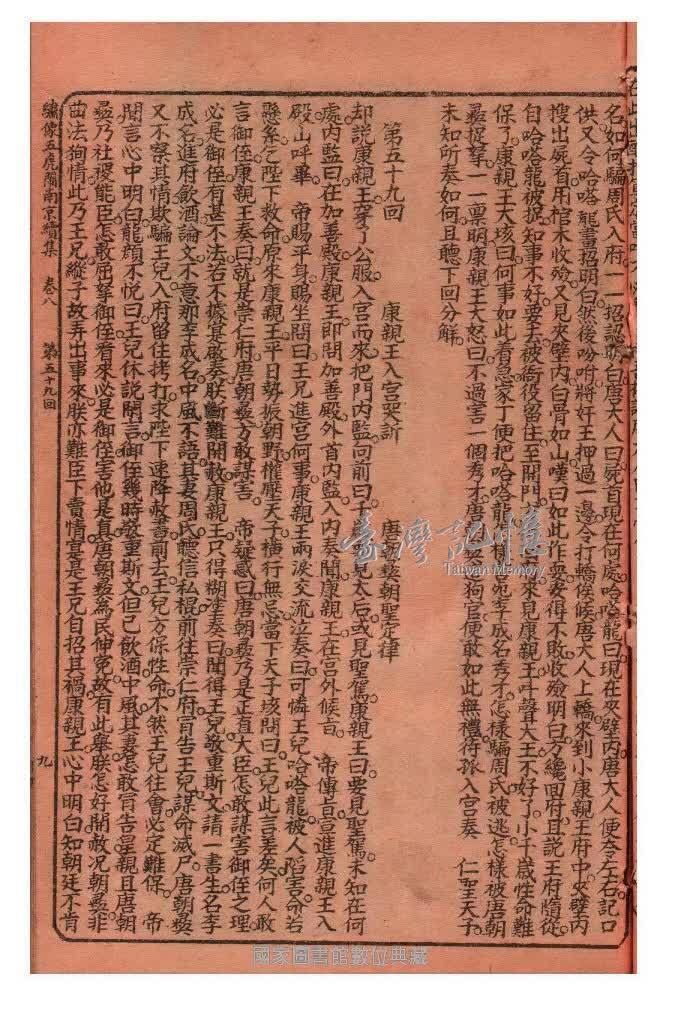 名如何騙周氏入府一一招認唐大人曰屍首現在何處哈咯龍曰現在夾壁內唐大人便令左右記口
供又令哈咯龍畫招明白然後吩咐將奸王押過一邊令打轎候唐大人上轎來到小康親王府中夾壁內
搜出屍首用棺木收殮又見夾壁內白骨如山嘆曰如此作耍得不敗收殮明白方纔回府且說王府隨從
自哈咯龍被捉知事不好要去被衙役留住至開門來見康親王叶聲大王不好了小千歲性命難
保了康親王大垓曰何事如此着急家丁便把哈咯龍怎樣宛李成名秀才怎樣騙周氏被逃怎樣被唐朝
彞捉拏一一禀明康親王大怒曰不過害一個秀才唐狗官便敢如此無禮待孤入宮奏 仁聖天子
未知所奏如何且聽下回分解
第五十九回 康親王入宮哭訴 唐朝彞朝聖定律
却說康親王穿了公服入宮而來把門內監向前曰千見太后或見聖駕康親王曰要見聖駕未知在何
處內監曰在加善殿康親王即問加善殿外首內監入內奏聞康親王在宮外候旨 帝傳旨宣進康親王入
殿山呼畢 帝賜平身賜坐問曰王兄進宮何事康親王兩淚交流泣奏曰可憐王兒哈咯龍被人陷害命若
懸絲乞陛下救命原來康親王平日勢振朝野權壓天子橫行無忌當下天子垓問曰王兄此言差矣何人敢
言御侄康親王奏曰就是崇仁府唐朝彞方敢謀害 帝疑惑曰唐朝彞乃是正直大臣怎敢謀害御侄之理
必是御侄有甚不法若不據寔啟奏朕斷難開赦康親王只得糊塗奏曰聞得王兒敬重斯文請一書生名李
成名進府飲酒論文不意那李成名中風不語其妻周氏聽信私棍前往崇仁府冐告王兒謀命滅尸唐朝彞
又不察其情欺騙王兒入府留住拷打求陛下速降赦書前去王兒方保性命不然王兒往會必定難保 帝
聞言心中明白龍顏不悅曰王兄休說閒言御侄幾時敬重斯文但已飲酒中風其妻怎敢冐告皇親且唐朝
彞乃社稷能臣怎敢屈拏御侄看來必是御侄害他是真唐朝彞為民伸冤故有此舉朕怎好開赦况朝彞非
曲法狥情此乃王兄縱子故弄出事來朕亦難臣下賣情寔是王兄自招其禍康親王心中明白知朝廷不肯
繡像五虎鬧南京續集 卷八 第五十九回 九
臺灣記憶
Taiwan Memory
國家圖書館數位典藏